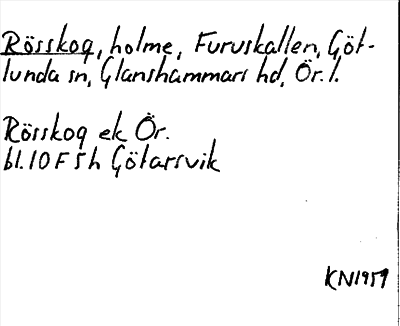 Rösskog, holme, Furuskallen, Göt-
lunda sn, Glanshammars hd, Ör. l.
Rösskog ek Ör.
bl. 10 F 5 h Götarsvik
KN1959